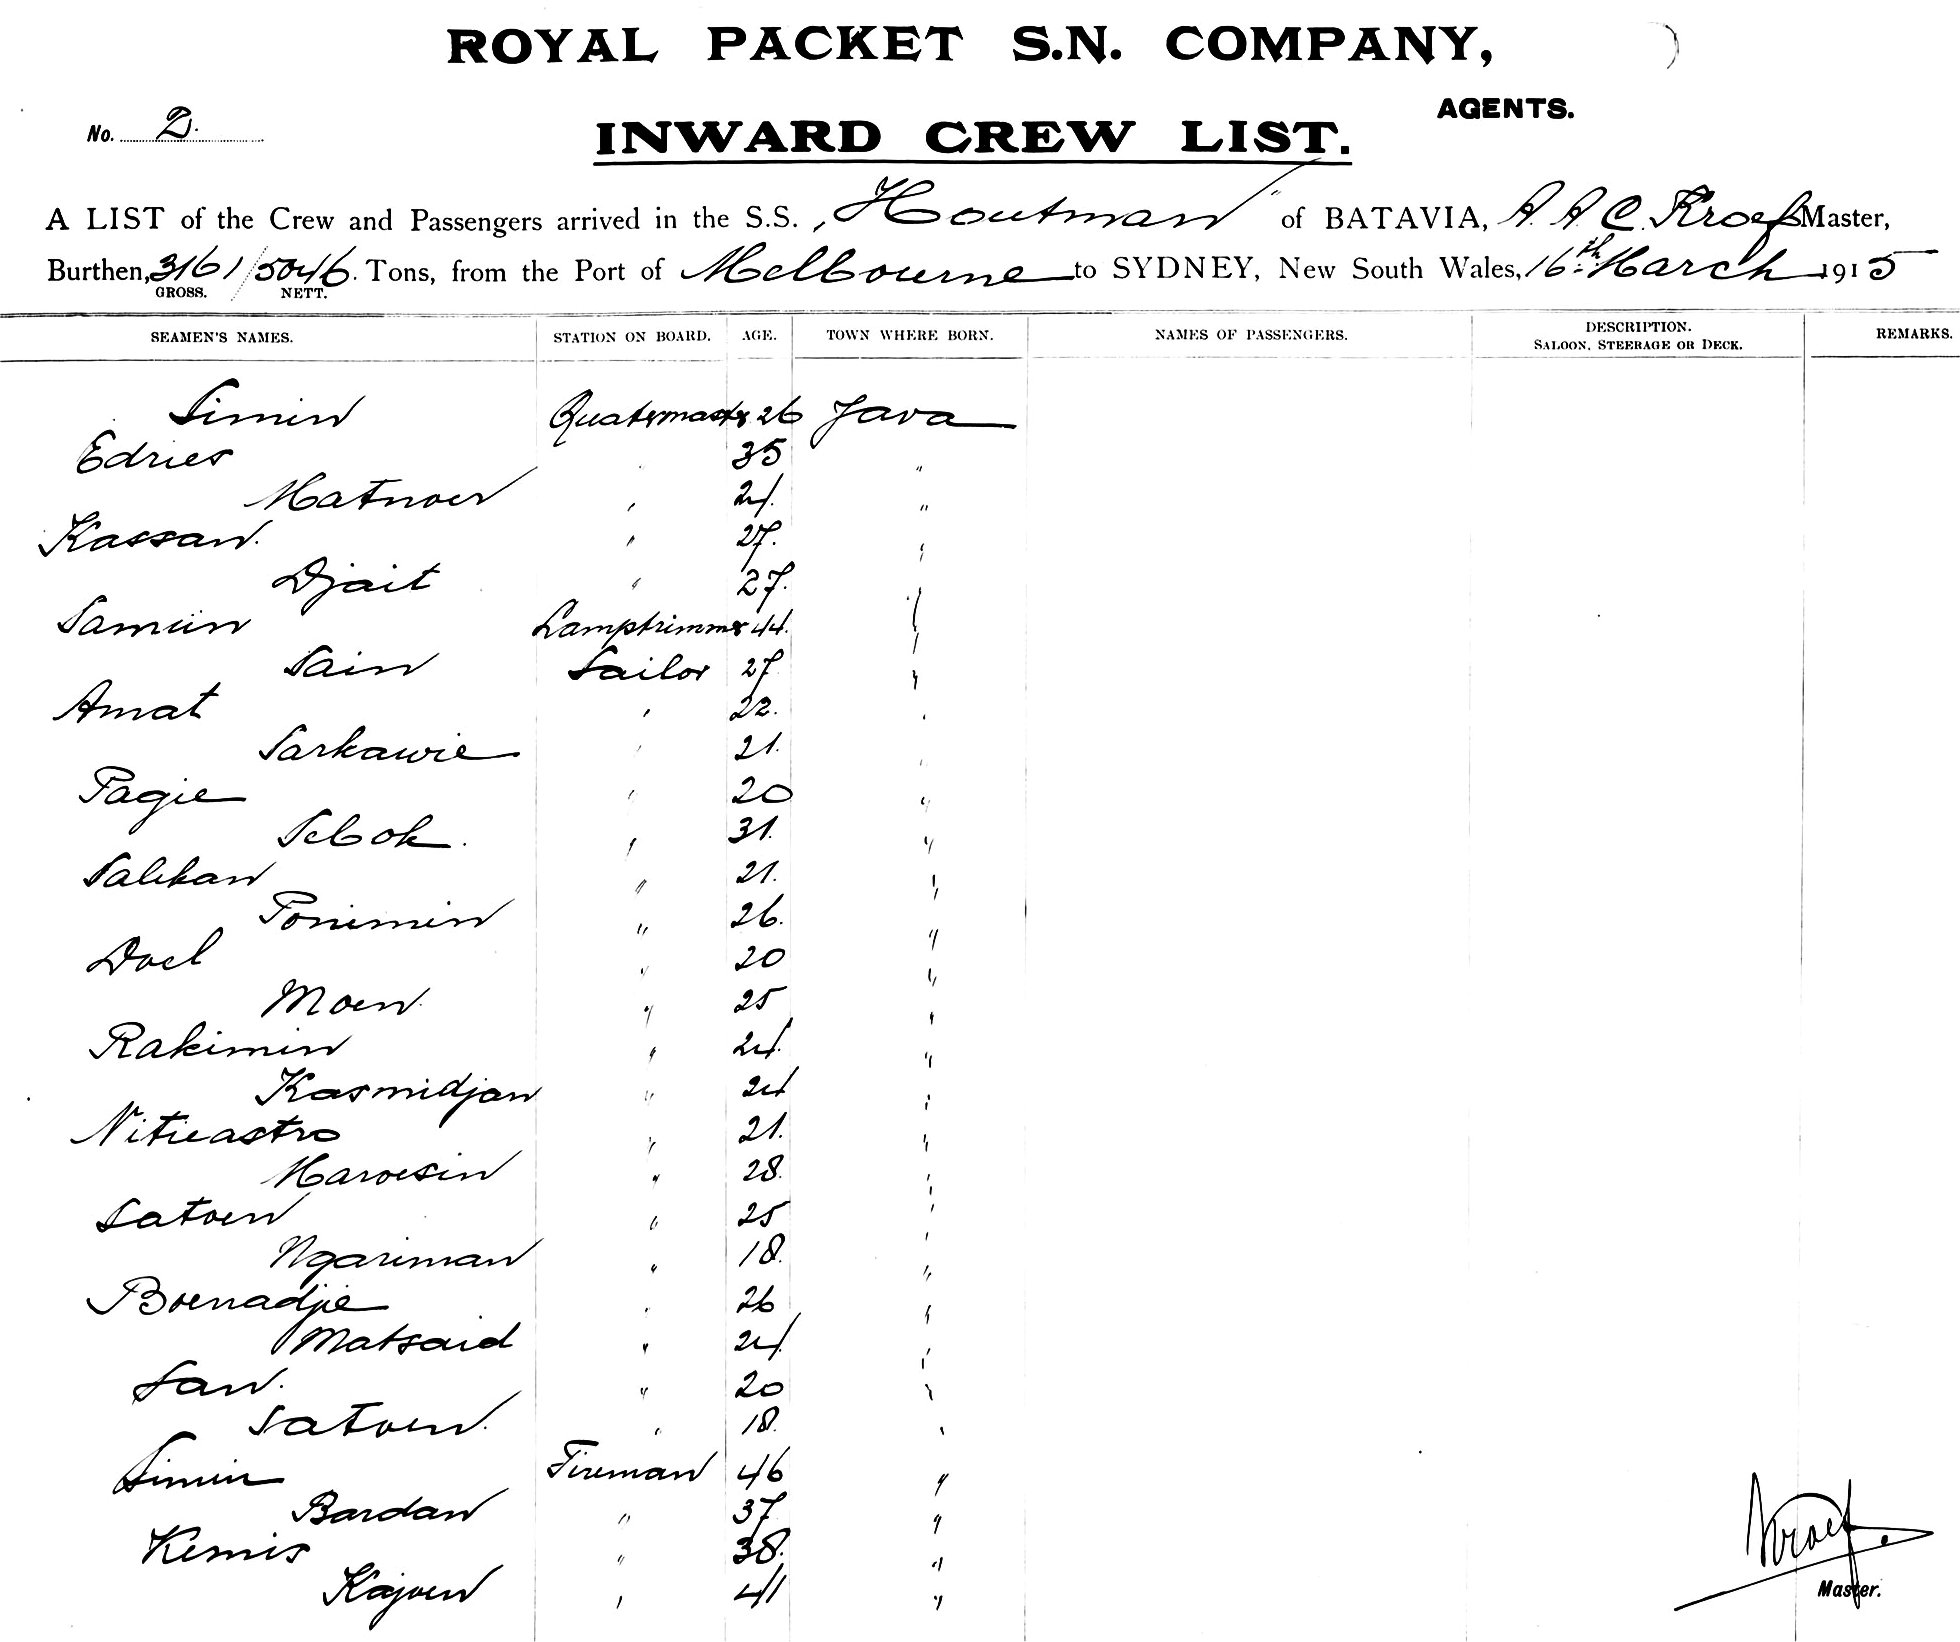 ROYAL PACKET S.N. COMPANY,
AGENTS.
No. 2.
INWARD CREW LIST.
A LIST of the Crew and Passengers arrived in the S.S. „Houtman" of BATAVIA, A. A. C. Kroef Master,
Burthen, 3161/5046. Tons, from the Port of Melbourne to SYDNEY, New South Wales, 16th March 1915
GROSS. NETT.
SEAMEN'S NAMES. STATION ON BOARD. AGE. TOWN WHERE BORN. NAMES OF PASSENGERS. DESCRIPTION. SALOON, STEERAGE OR DECK. REMARKS.
Simin Quatermaster 26 Java
Edries " 35 "
Matnoen " 24. "
Kassan. " 27. "
Djait " 27. "
Samiin Lamptrimmer 44. "
Sain Sailor 27 "
Amat " 22. "
Sarkawie " 21. "
Pagie " 20 "
Sebok. " 31. "
Salikan " 21. "
Ponimin " 26. "
Doel " 20 "
Moen. " 25 "
Rakimin " 24. "
Kasmidjan " 24 "
Nitieastro " 21. "
Maroesin " 28. "
Satoen " 25 "
Ngariman " 18. "
Boenadjie " 26 "
Matsaid " 24. "
San. " 20 "
Satoen. " 18. "
Simin Fireman 46 "
Bardan " 37 "
Kemis " 38. "
Kajoen " 41 "
Kroef.
Master.